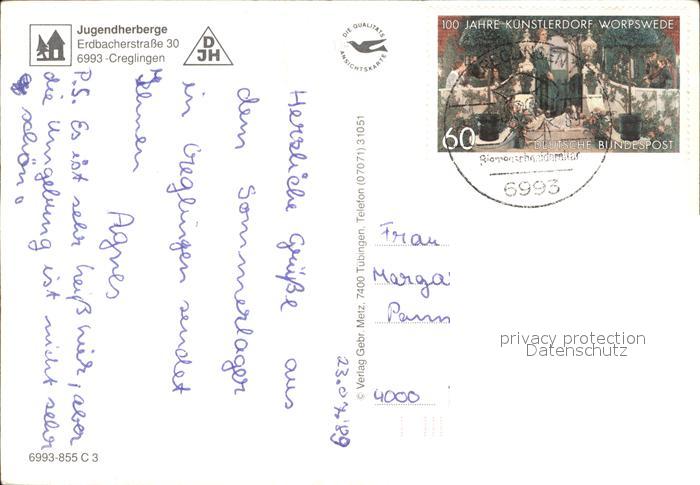 Jugendherberge
Erdbacherstraße 30
6993 -Creglingen
D
JH
DIE QUALITÄTS
ANSICHTSKARTE
100 JAHRE KÜNSTLERDORF WORPSWEDE
60
DEUTSCHE BUNDESPOST
6993
Herzliche Grüße aus
dem Sommerlager
in Creglingen sendet
Ihnen
Agnes
P.S. Es ist sehr heiß hier, aber
die Umgebung ist nicht sehr
schön.
23.07.'89
© Verlag Gebr. Metz, 7400 Tübingen, Telefon (07071) 31051
Frau
Marga
Pann
4000
privacy protection
Datenschutz
6993-855 C 3